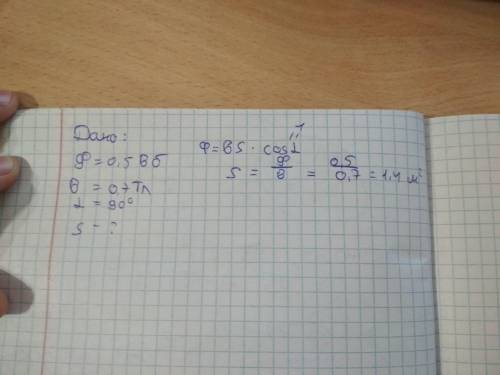 Дано:
Ф = 0,5 Вб
B = 0,7 Тл
α = 90°
S - ?
1
"
Ф = BS · cosα
S = Ф/B = 0,5/0,7 = 1,4 м²